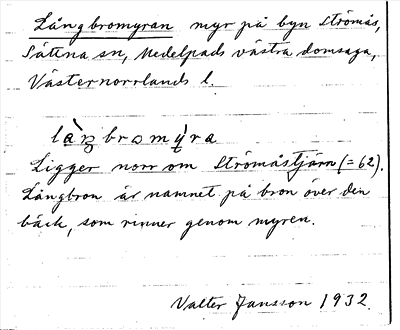 Långbromyran myr på byn Strömås,
Sättna sn, Medelpads västra domsaga,
Västernorrlands l.
làŋbromy̌ra
Ligger norr om Strömåstjärn (= 62).
Långbron är namnet på bron över den
bäck, som rinner genom myren.
Valter Jansson 1932.